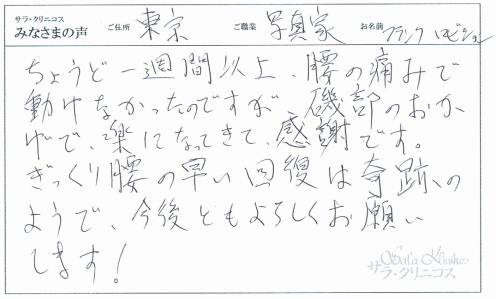 サラ・クリニコス
みなさまの声 ご住所 東京 ご職業 写真家 お名前 フランク ロビション
ちょうど一週間以上、腰の痛みで
動けなかったのですが、磯部のおか
げで、楽になってきて、感謝です。
ぎっくり腰の早い回復は奇跡の
ようで、今後ともよろしくお願い
します!
Sara Klinikos
サラ・クリニコス